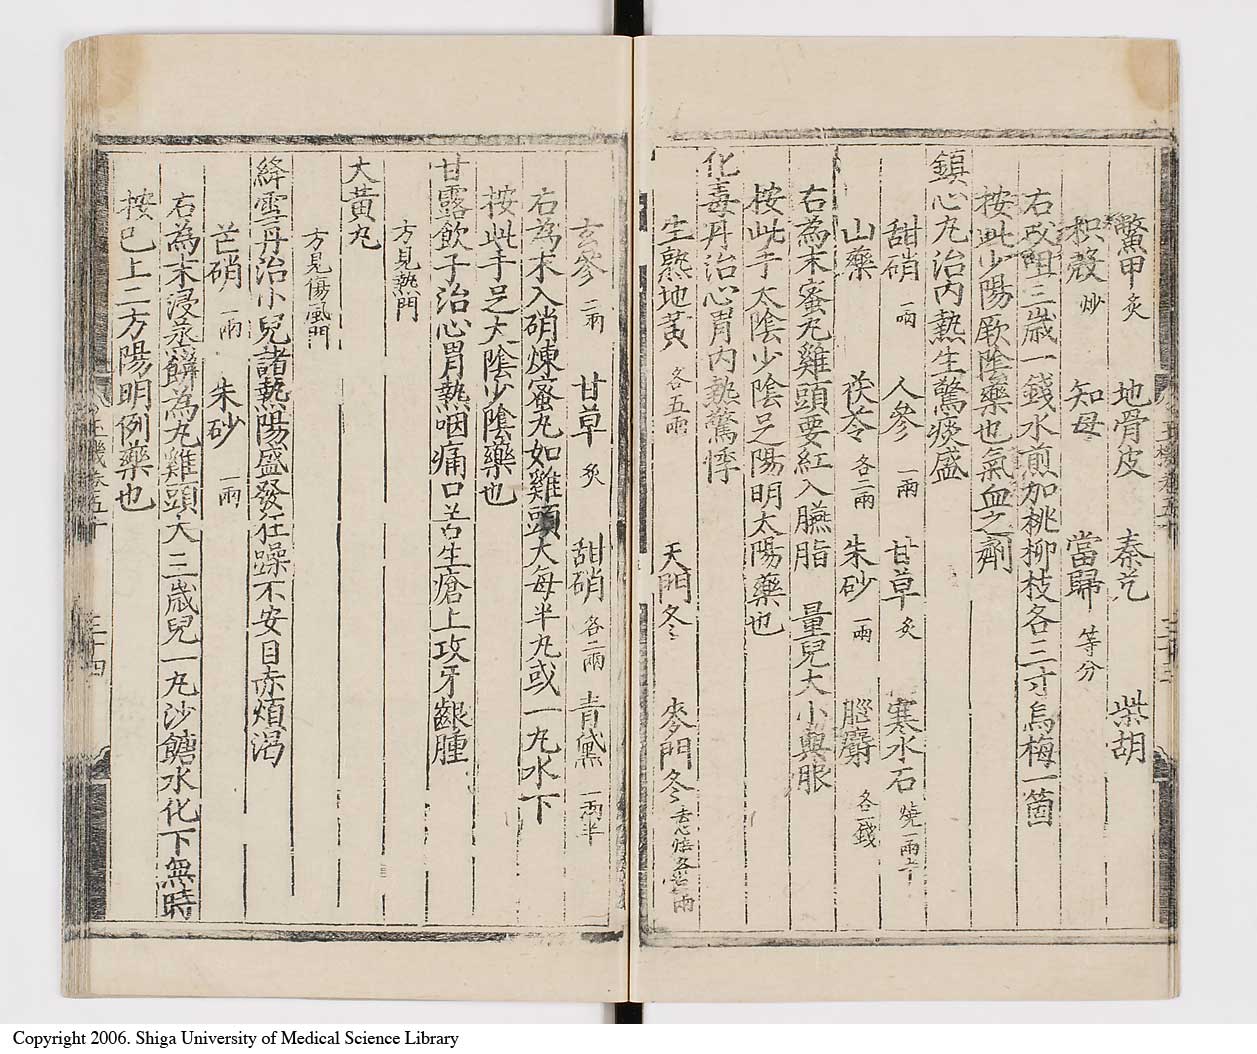 鱉甲 炙 地骨皮 秦艽 柴胡
枳殼 炒 知母 當歸 等分
右㕮咀三歲一錢水煎加桃柳枝各三寸烏梅一箇
按此少陽厥陰藥也氣血之劑
鎮心丸治內熱生驚痰盛
甜硝 一兩 人參 一兩 甘草 炙 寒水石 燒一兩半
山藥 茯苓 各二兩 朱砂 一兩 腦麝 各一錢
右為末蜜丸雞頭要紅入臙脂 量兒大小與服
按此手太陰少陰足陽明太陽藥也
化毒丹治心胃內熱驚悸
生熟地黃 各五兩 天門冬 麥門冬 去心焙各
玄參 二兩 甘草 炙 甜硝 各二兩 青黛 一兩半
右為末入硝煉蜜丸如雞頭大每半丸或一丸水下
按此手足大陰少陰藥也
甘露飲子治心胃熱咽痛口苦生瘡上攻牙齦腫
方見熱門
大黃丸
方見傷風門
絳雪丹治小兒諸熱陽盛發狂躁不安目赤煩渴
芒硝 一兩 朱砂 一兩
右為末浸蒸餅為丸雞頭大三歲兒一丸沙餹水化下無時
按已上二方陽明例藥也
三十四
Copyright 2006. Shiga University of Medical Science Library